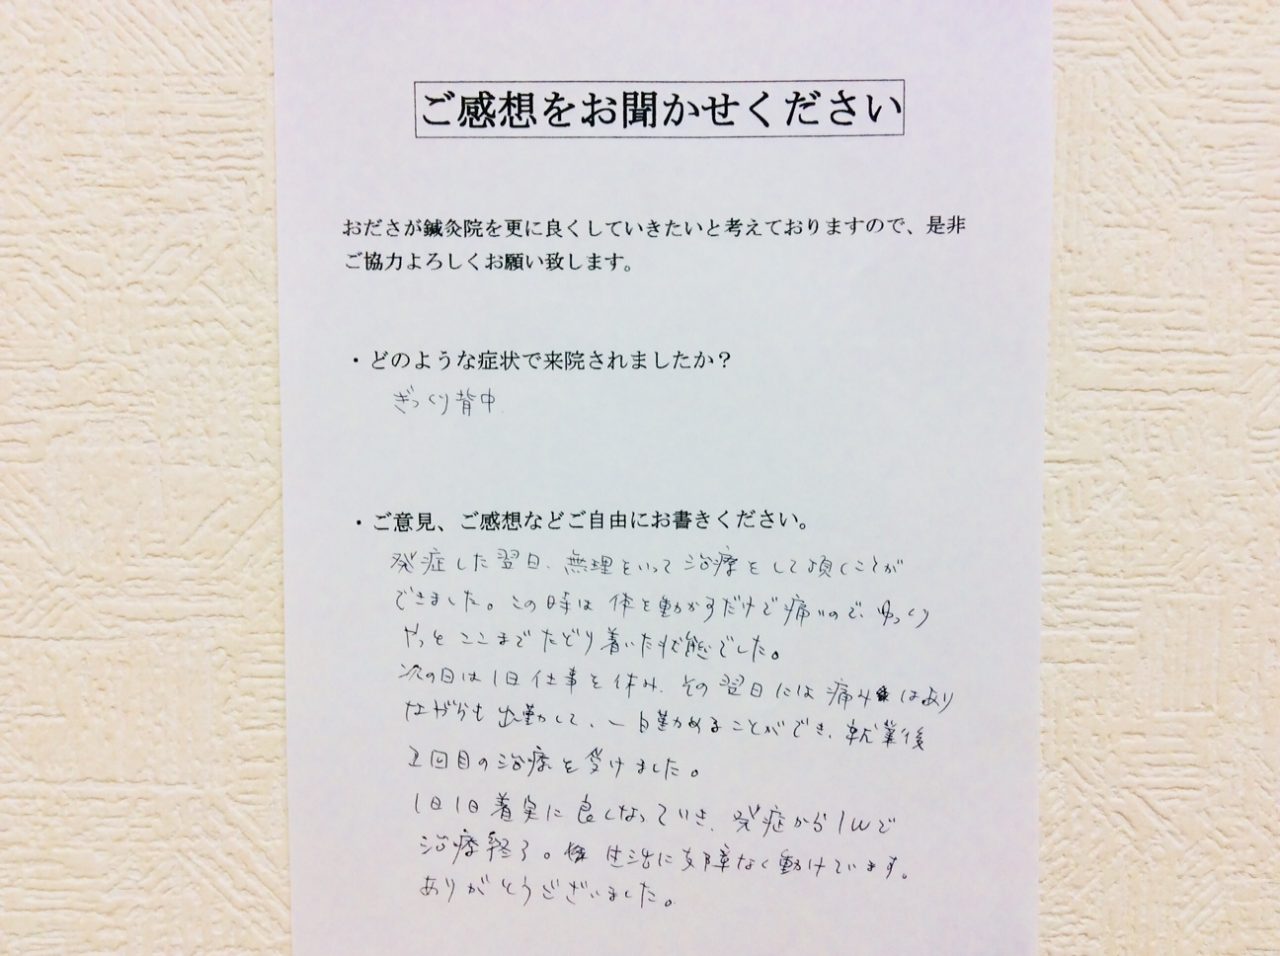 ご感想をお聞かせください
おださが鍼灸院を更に良くしていきたいと考えておりますので、是非
ご協力よろしくお願い致します。
・どのような症状で来院されましたか？
ぎっくり背中
・ご意見、ご感想などご自由にお書きください。
発症した翌日、無理をいって治療をして頂くことが
できました。この時は体を動かすだけで痛いので、ゆっくり
やっとここまでたどり着いた状態でした。
次の日は1日仕事を休み、その翌日には痛みはあり
ながらも出勤して、一日勤めることができ、就業後
2回目の治療を受けました。
1日1日着実に良くなっていき、発症から1wで
治療終了。生活に支障なく動けています。
ありがとうございました。